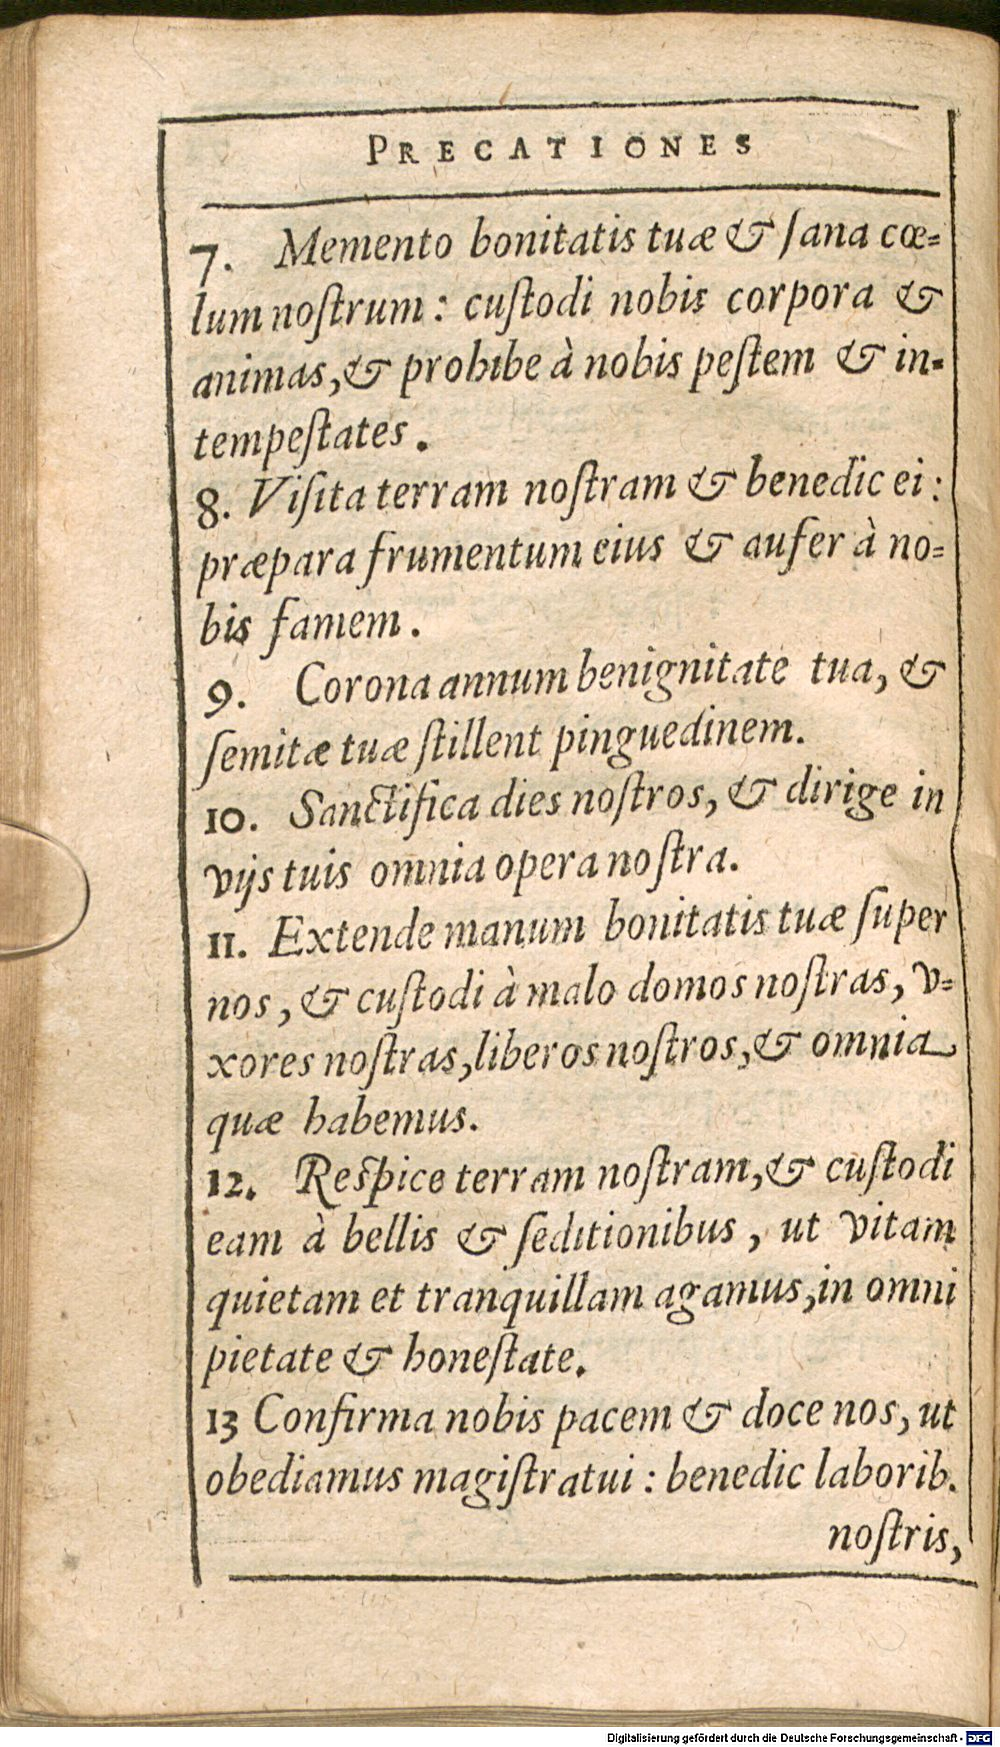 PRECATIONES
7. Memento bonitatis tuæ & ſana cœ-
lum noſtrum: cuſtodi nobis corpora &
animas, & prohibe à nobis peſtem & in-
tempeſtates.
8. Viſita terram noſtram & benedic ei:
præpara frumentum eius & aufer à no-
bis famem.
9. Corona annum benignitate tua, &
ſemitæ tuæ ſtillent pinguedinem.
10. Sanctifica dies noſtros, & dirige in
vijs tuis omnia opera noſtra.
11. Extende manum bonitatis tuæ ſuper
nos, & cuſtodi à malo domos noſtras, v-
xores noſtras, liberos noſtros, & omnia
quæ habemus.
12. Reſpice terram noſtram, & cuſtodi
eam à bellis & ſeditionibus, ut vitam
quietam et tranquillam agamus, in omni
pietate & honeſtate.
13 Confirma nobis pacem & doce nos, ut
obediamus magiſtratui: benedic laborib.
noſtris,
Digitalisierung gefördert durch die Deutsche Forschungsgemeinschaft - DFG